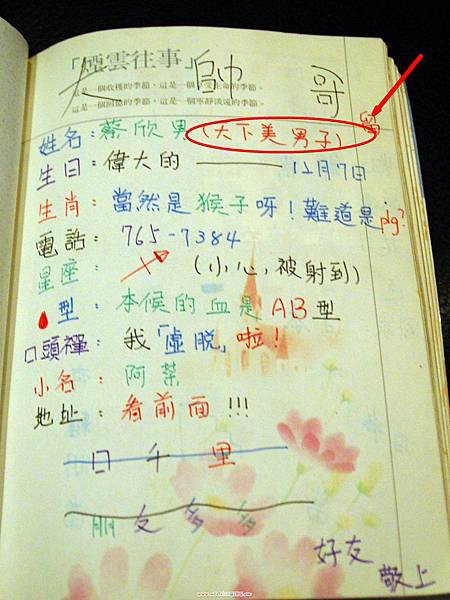 「煙雲往事」
大帥哥
這是一個收穫的季節,這是一個生命的季節。
這是一個回憶的季節,這是一個寧靜淡遠的季節。
姓名:蔡欣男(大下美男子)
生日:偉大的——12月7日
生肖:當然是猴子呀!難道是pig?
電話:765-7384
星座:(小心,被射到)
型:本候的血是AB型
口頭禪:我「虛脫」啦!
小名:阿菜
地址:看前面!!!
日千里
朋友多
好友
敬上